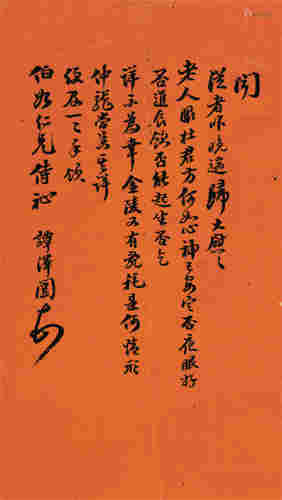 聞
從者昨晚遄歸大慰
老人服杜君方何如心神安定否夜眠好
否進食飲否能起坐否乞
詳示為幸金陵又有耗是何情形
仲龍當其詳
便及一一手頌
伯仁兄侍祉 譚澤闓